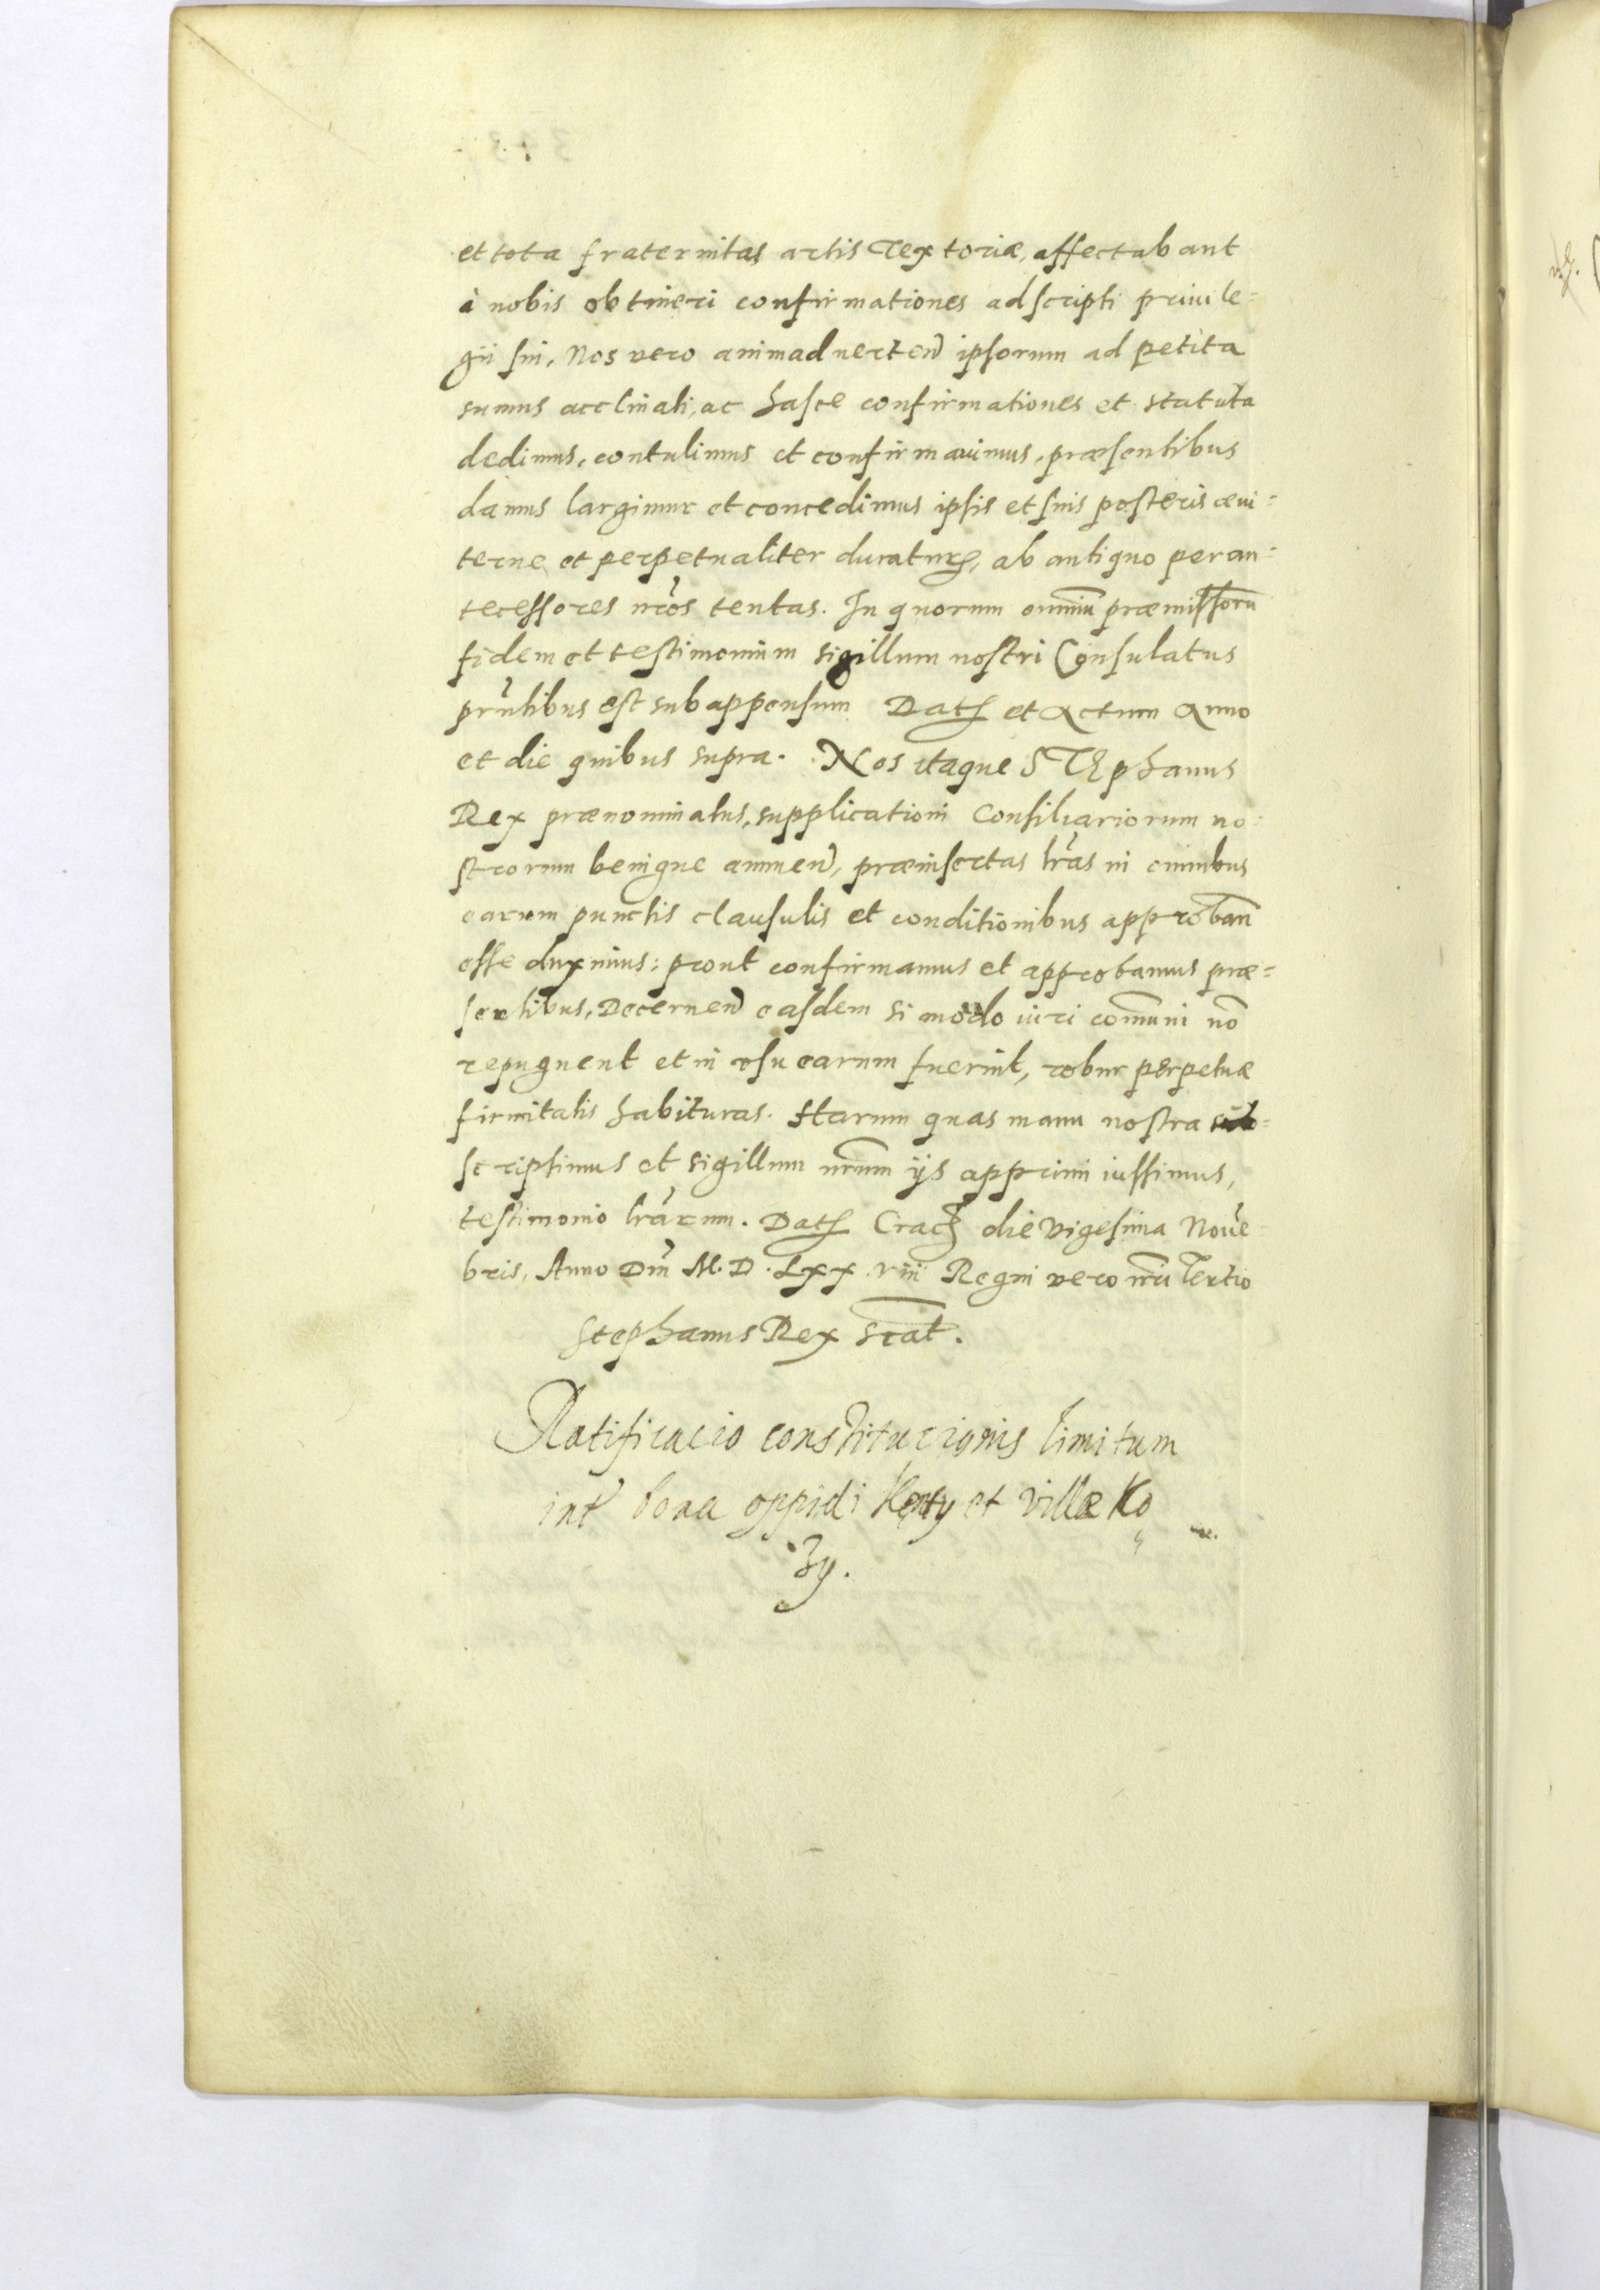 et tota fraternitas artis Textoriæ, affectabant
à nobis obtineri confirmationes adscripti priuile=
gii sui, Nos vero animaduerten̄ ipsorum ad petita
sumus acclinati, ac hasce confirmationes et statuta
dedimus, contulimus et confirmauimus, præsentibus
damus largimur et concedimus ipsis et suis posteris æui=
terne et perpetualiter duratur, ab antiquo per an=
tecessores nr̄os tentas. In quorum omniū præmissorū
fidem et testimonium sigillum nostri Consulatus
pr̄ntibus est subappensum Dat et Actum Anno
et die quibus supra. Nos itaque STEphanus
Rex prænominatus, supplicationi Consiliariorum no=
strorum benigne annuen̄, præinsertas lr̄as in omnibus
earum punctis clausulis et conditionibus approban̄
esse duximus: prout confirmamus et approbamus præ=
sentibus, Decernen̄ easdem si modo iuri com̄uni nō
repugnent et in vsu earum fuerint, robur perpetuæ
firmitatis habituras. Harum quas manu nostra sub=
scripsimus et sigillum nr̄um ijs apprimi iussimus,
testimonio lr̄arum. Dat Crac die vigesima Novē=
bris, Anno Dn̄i M.D.LXX.viii Regni vero nr̄i Tertio
Stephanus Rex sc̄at.
Ratificacio constitucionis limitum
int̄ bona oppidi Kęnty et villæ Ko
zy.